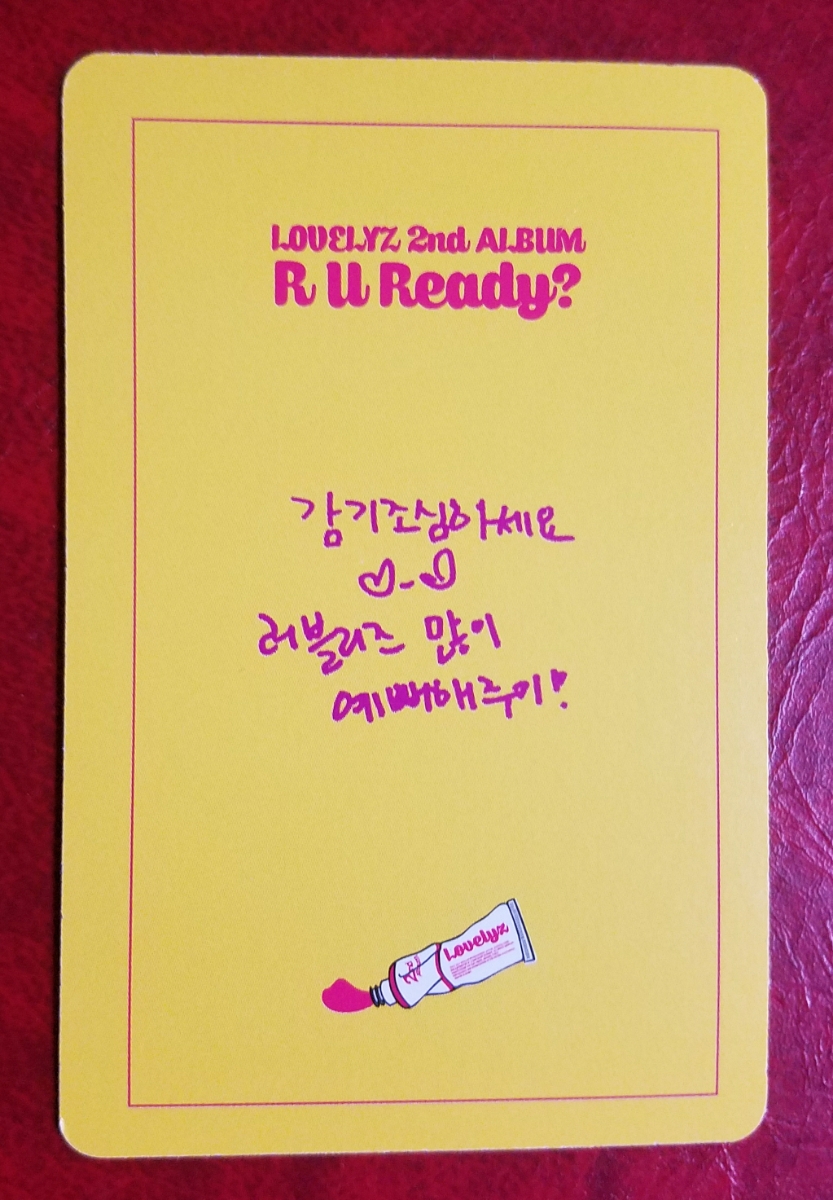 LOVELYZ 2nd ALBUM
R U Ready?
감기조심하세요
♡-♡
러블리즈 많이
예뻐해주이!
Lovelyz